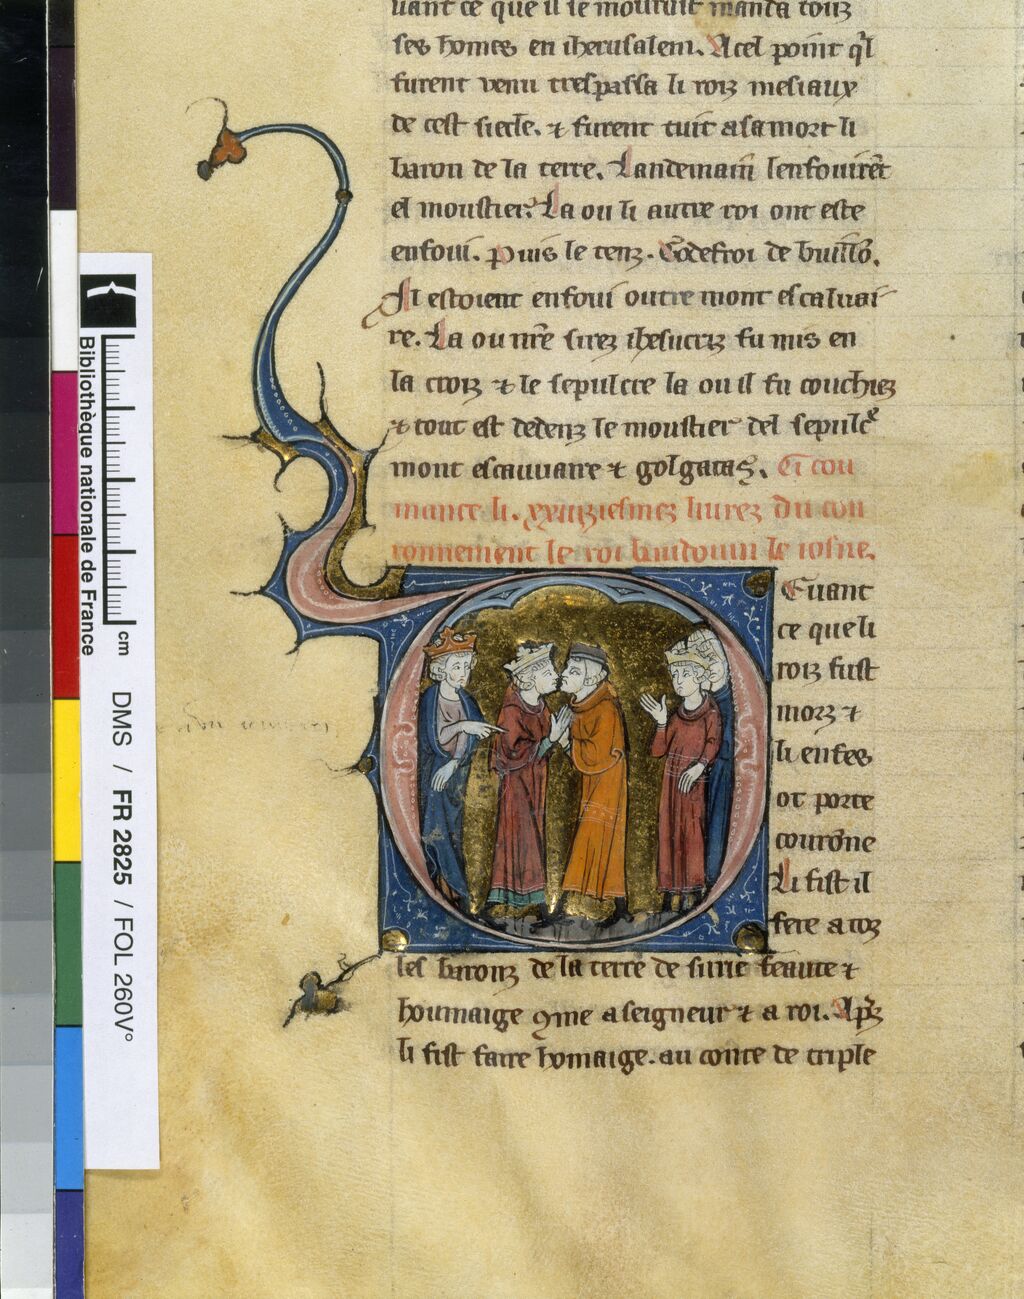 uant ce que il se mourust manda touz
ses homes en iherusalem. A cel point q̃l
furent venu trespassa li rois mesiaux
de cest siecle. ⁊ furent tuit a sa mort li
baron de la terre. Landemain lenfouirẽt
el moustier. La ou li autre roi ont este
enfoui. puis le tenz. Godefroi de buillõ.
Il estoient enfoui outre mont escaluai
re. La ou nr̃e sirez ihesucriz fu mis en
la croiz ⁊ le sepulcre la ou il fu couchiez
⁊ tout est dedenz le moustier del sepulcͬ
mont escauuaire ⁊ golgatas. Ci cou
mance li. xxiiiziesmez liurez du cou
ronnement le roi baudouin le iosne.
Euant
ce que li
rois fust
morz ⁊
li enfes
ot porte
courõne
Li fist il
fere a toz
les barons de la terre de surie feaute ⁊
houmaige ꝯme a seigneur ⁊ a roi. Apz̃
li fist faire homaige. au conte de triple
Bibliothèque nationale de France
cm
DMS / FR 2825 / FOL 260V°